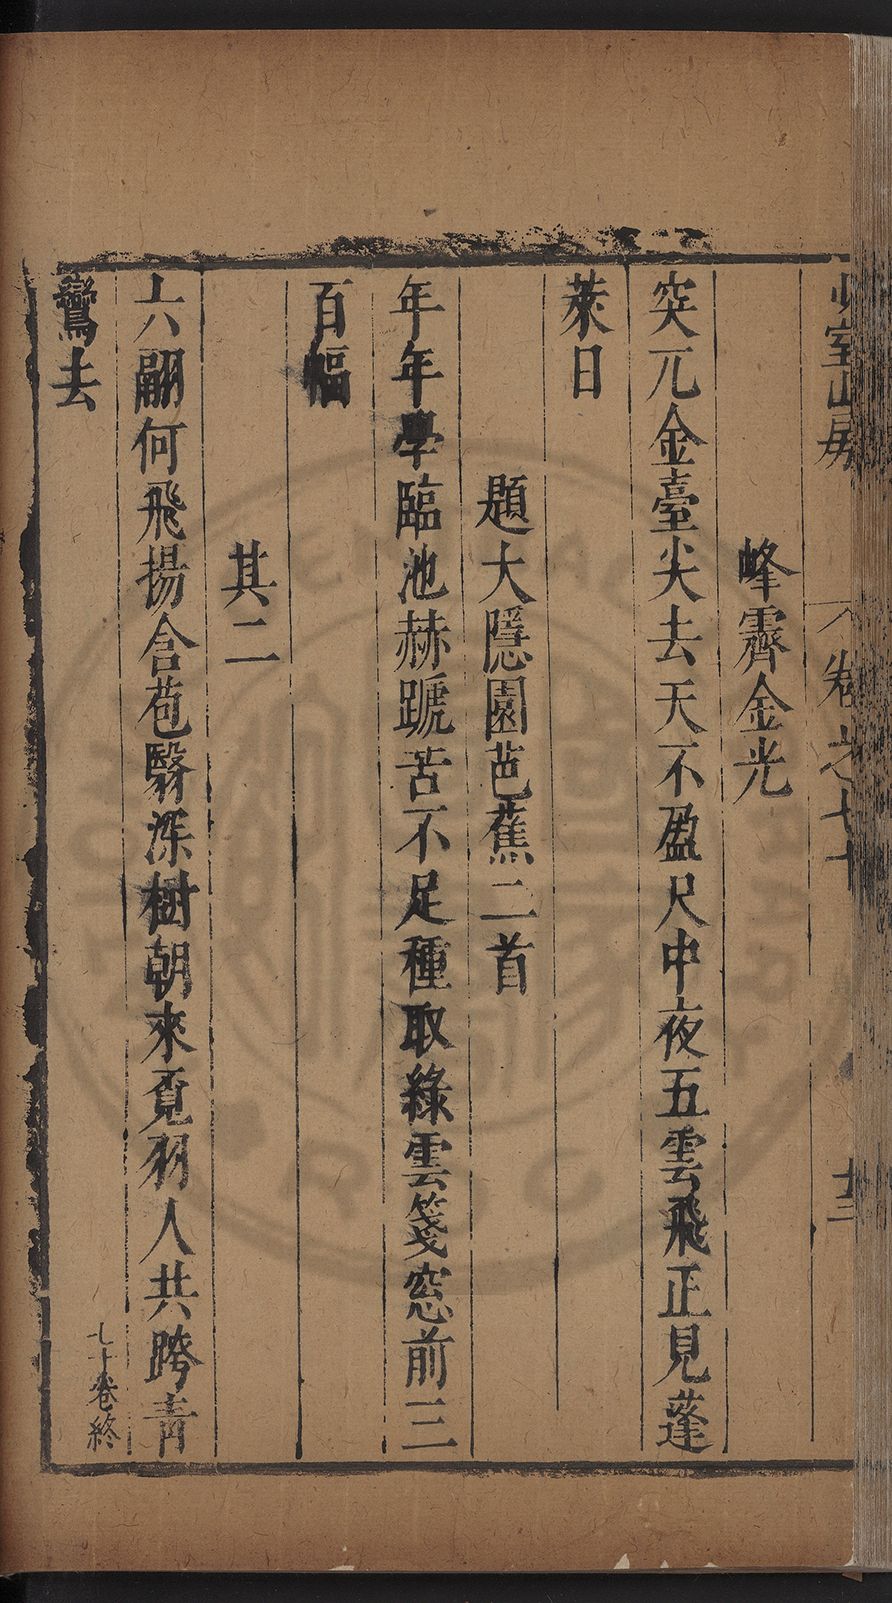 少室山房 卷之七十 十三
峰霽金光
突兀金臺尖去天不盈尺中夜五雲飛正見蓬
萊日
題大隱園芭蕉二首
年年學臨池赫蹏苦不足種取綠雲箋窓前三
百幅
其二
六翮何飛揚含苞翳深樹朝來覔羽人共跨青
鸞去
七十卷終